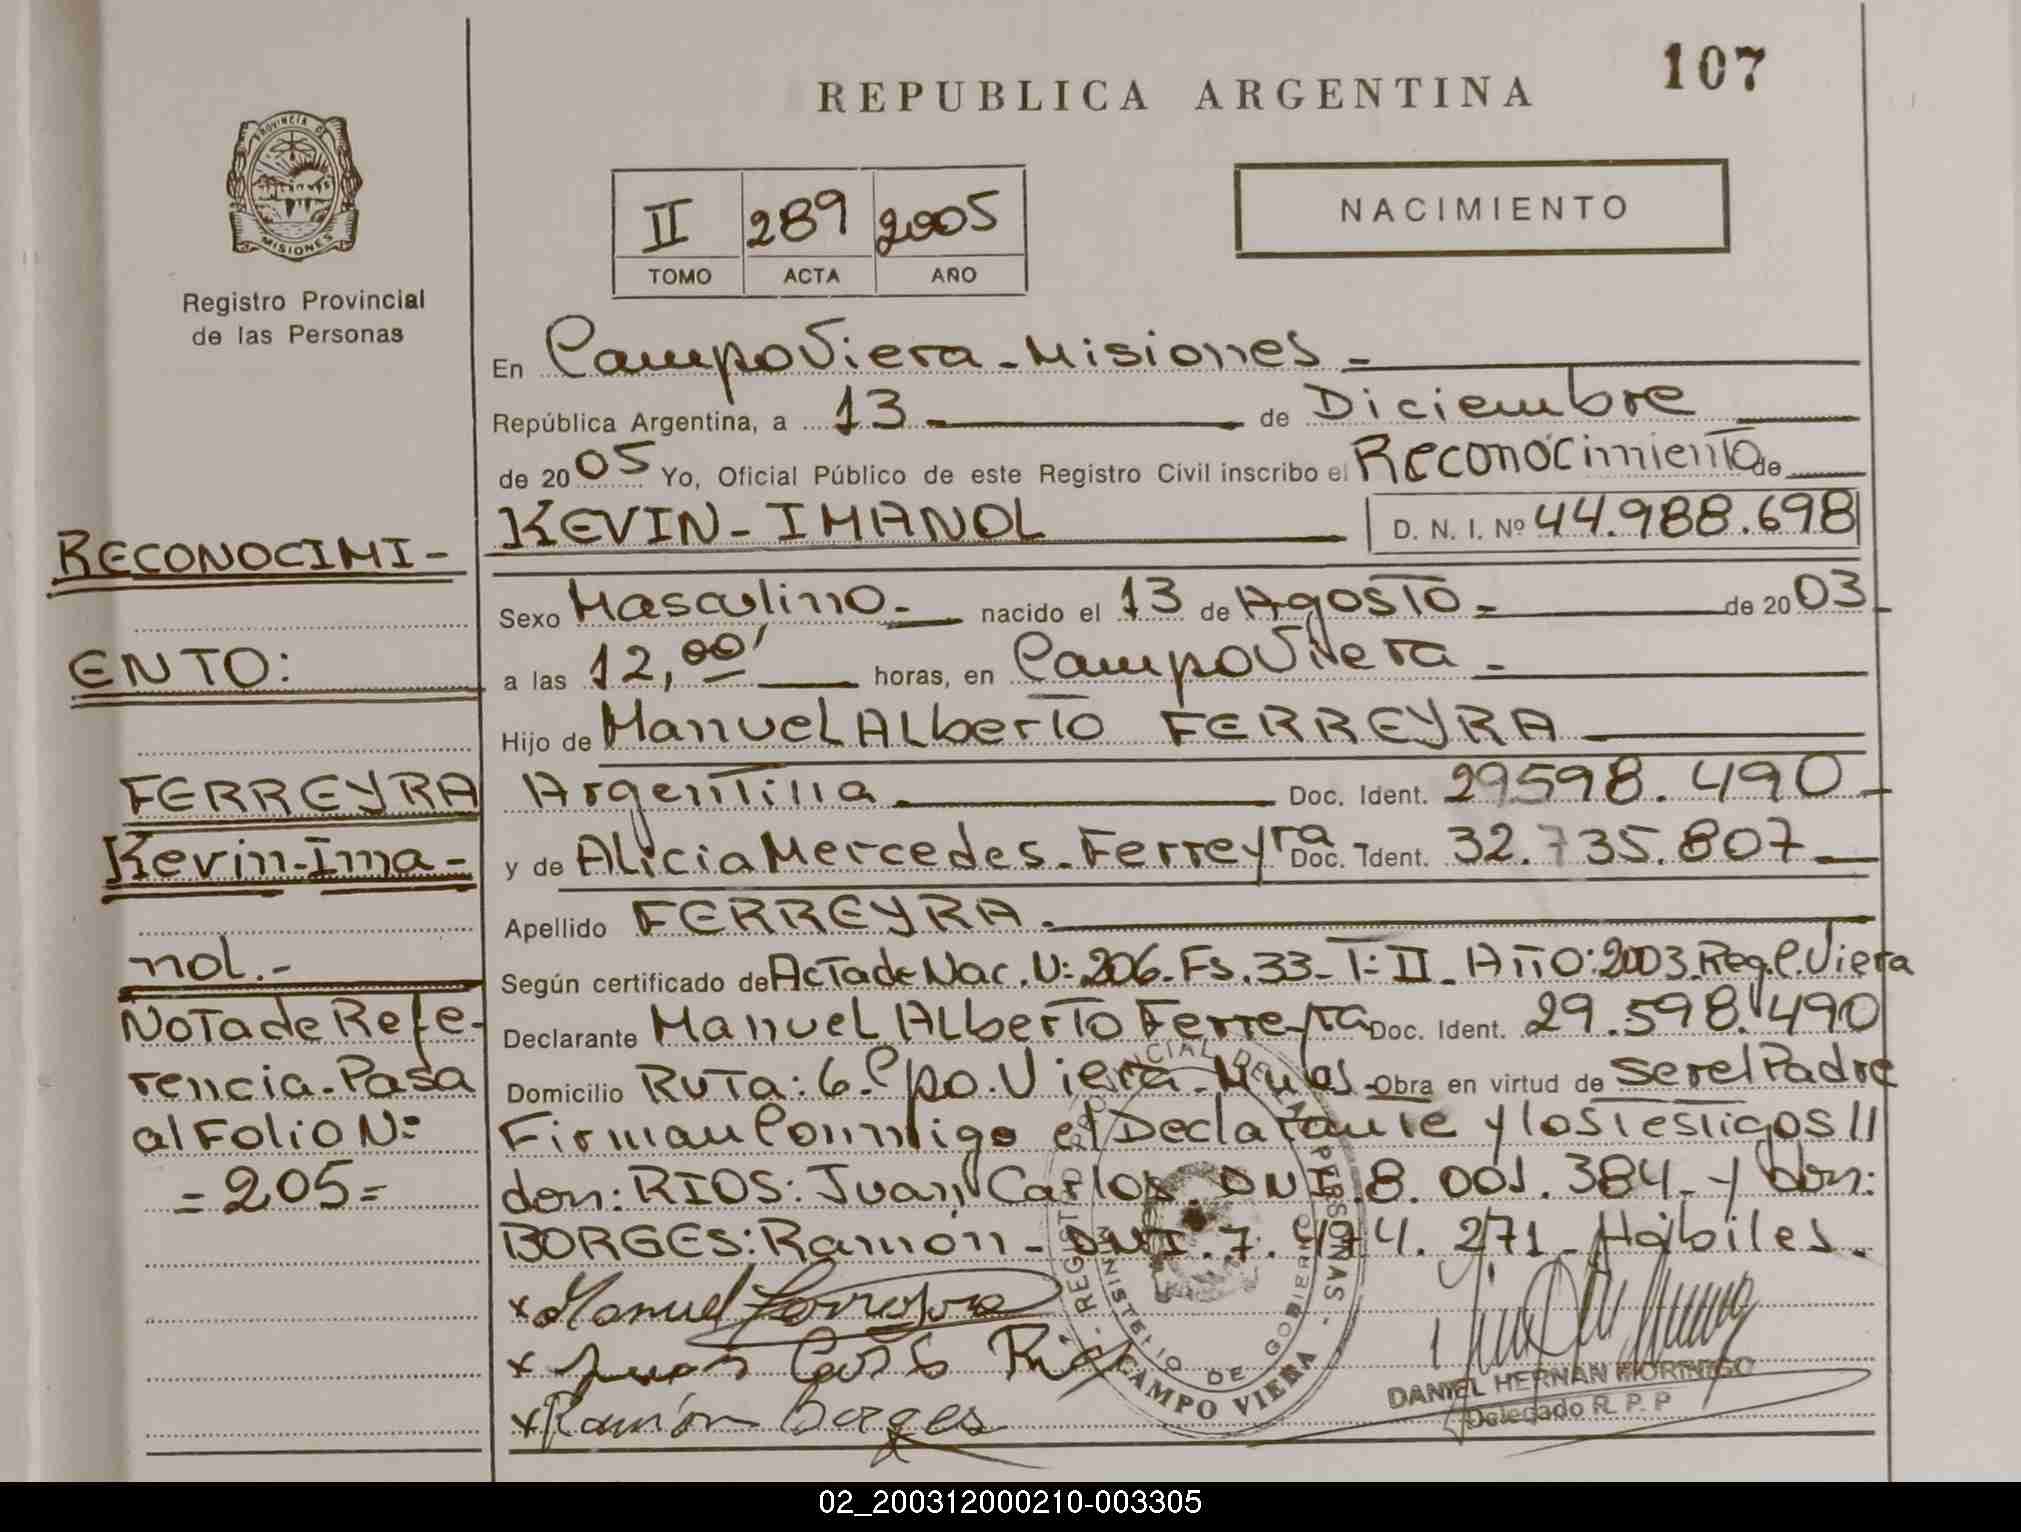 107
REPUBLICA ARGENTINA
PROVINCIA DE
MISIONES
Registro Provincial
de las Personas
II 289 2005
TOMO ACTA AÑO
NACIMIENTO
En Campo Viera - Misiones -
República Argentina, a 13 de Diciembre
de 2005 Yo, Oficial Público de este Registro Civil inscribo el Reconocimiento de
KEVIN - IMANOL D. N. I. Nº 44.988.698
Sexo Masculino - nacido el 13 de Agosto - de 2003
a las 12,00' horas, en Campo Viera -
Hijo de Manuel Alberto FERREYRA
Argentina Doc. Ident. 29598.490 -
y de Alicia Mercedes - Ferreyra Doc. Ident. 32.735.807
Apellido FERREYRA.
Según certificado de Acta de Nac. Nº 206 - Fs. 33 - T: II - Año: 2003. Reg. C. Viera
Declarante Manuel Alberto Ferreyra Doc. Ident. 29.598.490
Domicilio Ruta: 6. Cpo. Viera - Mnes - Obra en virtud de ser el Padre
Firman Conmigo el Declarante y los Testigos //
don: RIOS: Juan Carlos. DNI. 8.001.384 - y don:
BORGES: Ramón - DNI. 7.474.271 - Hábiles.
RECONOCIMI -
ENTO:
FERREYRA
Kevin - Ima -
nol. -
Nota de Refe-
rencia - Pasa
al Folio Nº
= 205 =
x Manuel Ferreyra
x Juan Carlos Rios
x Ramón Borges
REGISTRO PROVINCIAL DE LAS PERSONAS
MINISTERIO DE GOBIERNO
CAMPO VIERA
DANIEL HERNAN MORINIGO
Delegado R. P. P
02_200312000210-003305